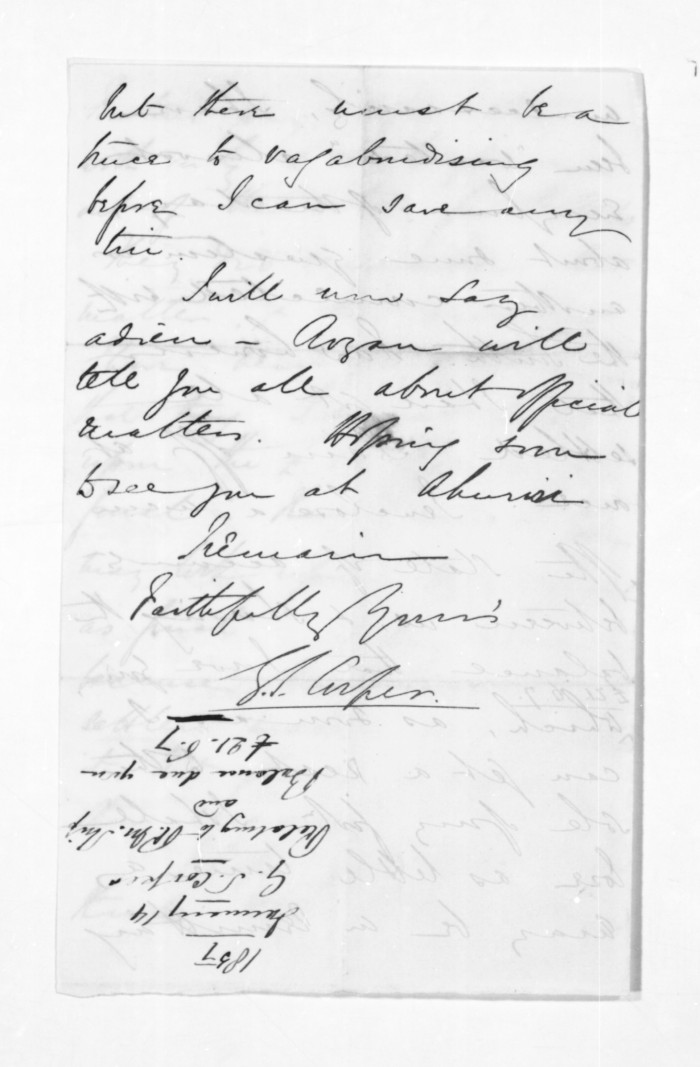 but there must be a
truce to vagabondising
before I can save any
tin.
I will now say
adieu - Rogan will
tell you all about official
matters. Hoping soon
to see you at Ahuriri
I remain
Faithfully Yours
G.S. Cooper.
1857
January 14
G. S. Cooper
Relating to
and
Balance due you
£21.6.7